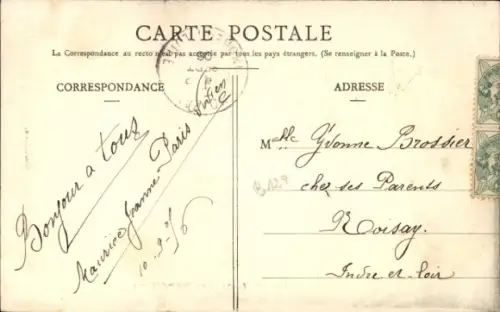 CARTE POSTALE
La Correspondance au recto n'est pas acceptée par tous les pays étrangers. (Se renseigner à la Poste.)
CORRESPONDANCE
ADRESSE
Bonjour a tous
Maurice Jeanne - Paris
10-9-06
Melle Yvonne Brossier
chez ses Parents
Noisay.
Indre et loir
B.129